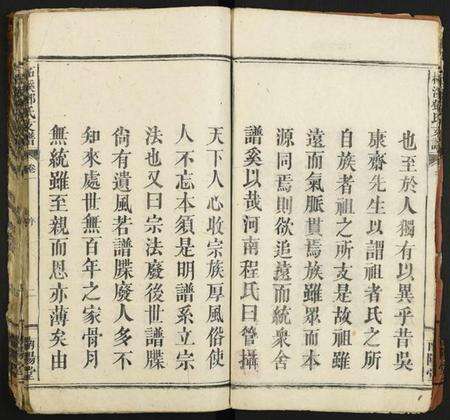 也至於人獨有以異乎昔吳
康齋先生以謂祖者氏之所
自族者祖之所支是故祖雖
遠而氣脈貫焉族雖眾而本
源同焉則欲追遠而統衆舍
譜奚以哉河南程氏曰管攝
天下人心收宗族厚風俗使
人不忘本須是明譜系立宗
法也又曰宗法廢後世譜牒
尙有遺風若譜牒廢人多不
知來處世無百年之家骨月
無統雖至親而恩亦薄矣由
卷一
序
南陽堂